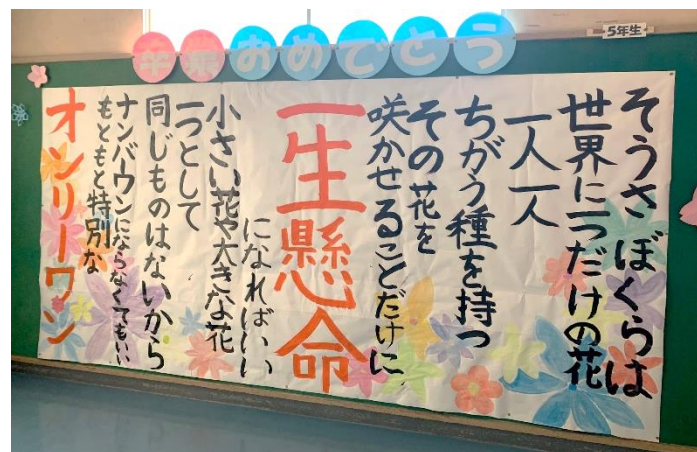 卒業おめでとう
5年生
そうさぼくらは
世界に一つだけの花
一人一人
ちがう種を持つ
その花を
咲かせることだけに
一生懸命
になればいい
小さい花や大きな花
一つとして
同じものはないから
ナンバーワンにならなくてもいい
もともと特別な
オンリーワン